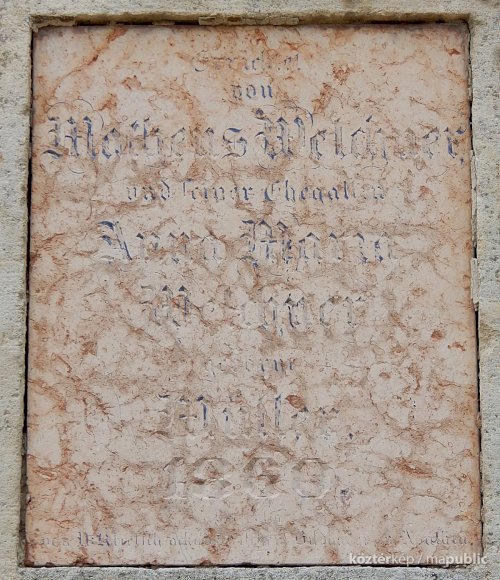 Errichtet
von
Matheus Welchner,
und seiner Ehegattin
Anna Maria
Welchner
geborne
Müller.
1860.
köztérkép / mapublic